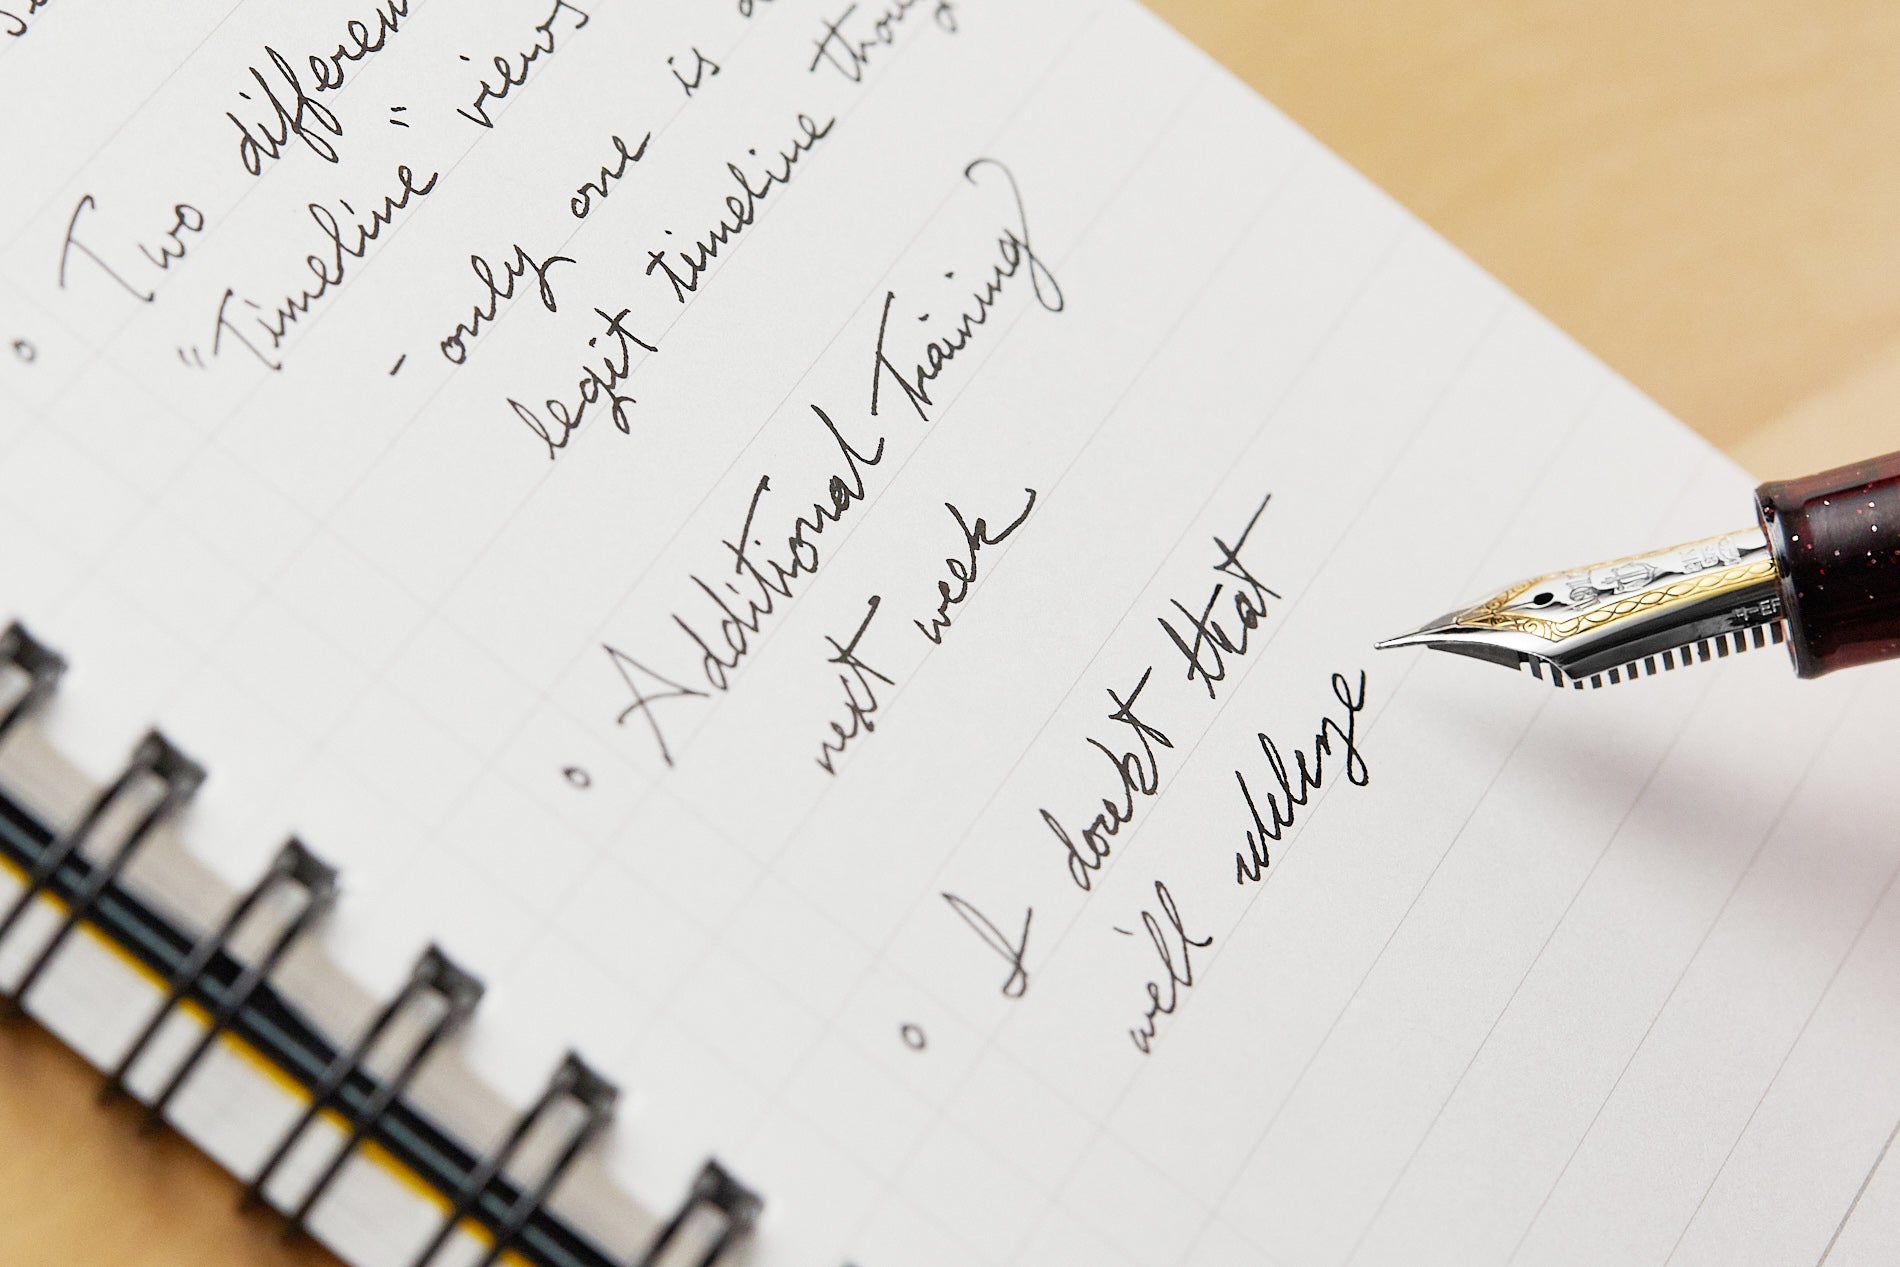 Two differen
"Timeline" views
- only one is a
legit timeline thoug
Additional Training
next week
I doubt that
we'll utilize
1911
14K
585
H-EF